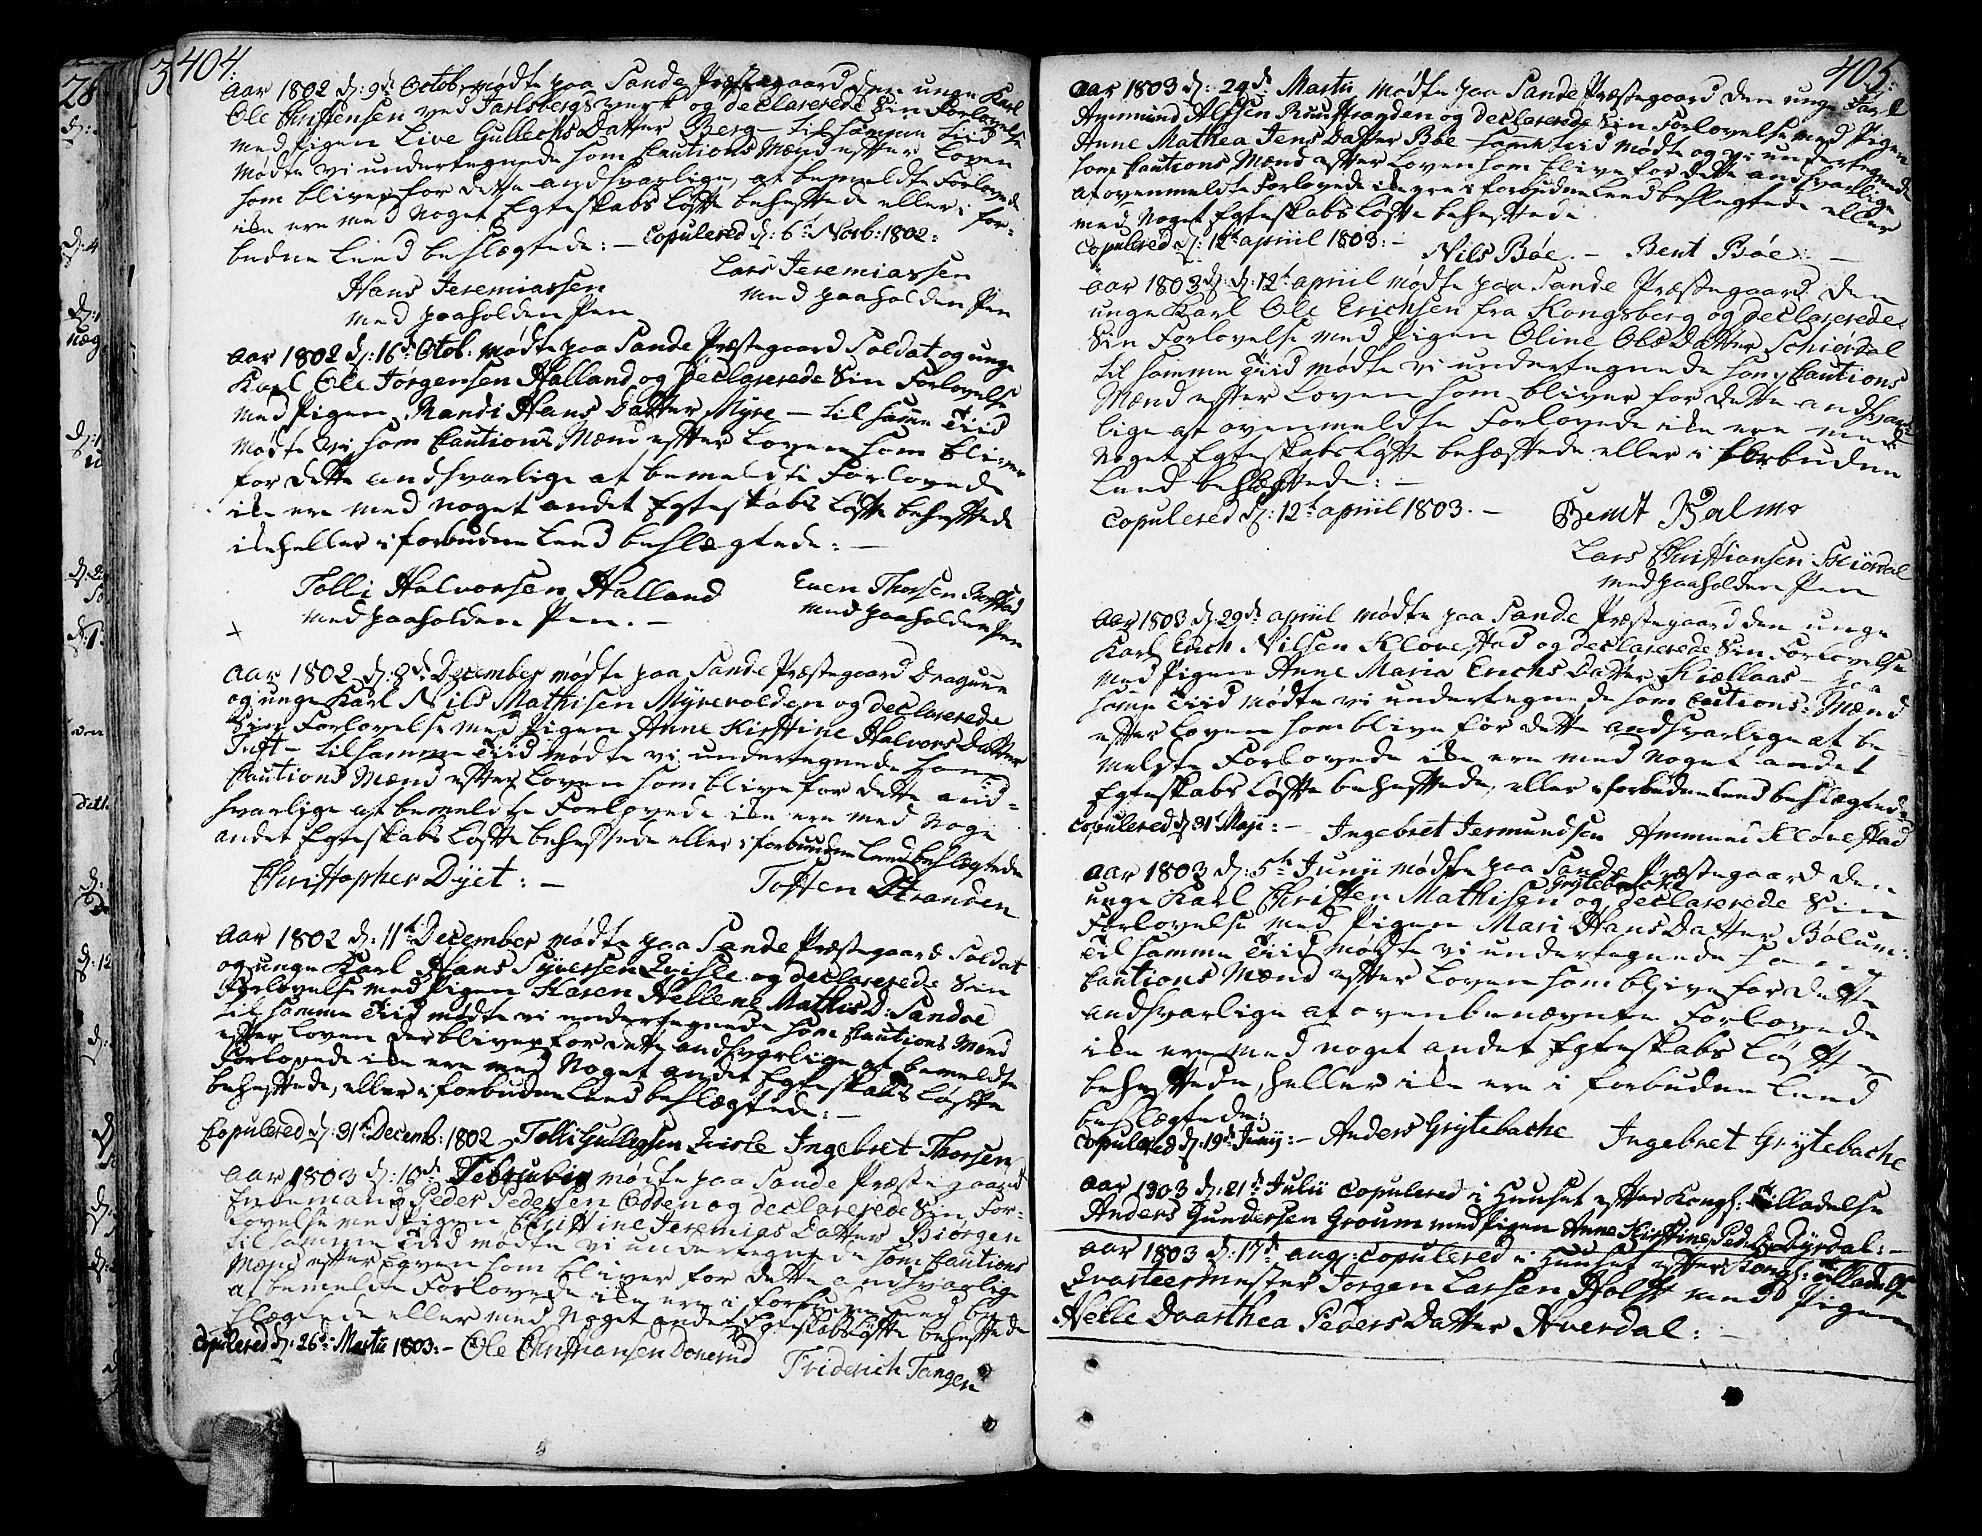 404.
Aar 1802 d: 9de Octob. mødte paa Sande Præstegaard den unge Karl
Ole Christensen ved Jarlsbergs værk og declarerede Sin Forlovelse
med Pigen Live Gullechs Datter Berg – til samme Tiid
mødte vi undertegnede som Cautions Mænd efter Loven
som bliver for dette andsvarlige, at bemeldte Forlovede
ikke ere med noget Egteskabs Løfte behæftede eller i for-
budne Leed beslægtede: – Copulered d: 6te Novb: 1802:
Hans Jeremiassen Lars Jeremiassen
med paaholden Pen med paaholden Pen
Aar 1802 d: 16de Octob: mødte paa Sande Præstegaard Soldat og unge
Karl Ole Jørgensen Halland og declarerede Sin Forlovelse
med Pigen Randi Hans Datter Myre – til samme Tiid
mødte Vi som Cautions Mænd efter Loven som bliver
for dette andsvarlige at bemeldte Forlovede
ikke ere med noget andet Egteskabs Løfte behæftede
ikke heller i forbudne Leed beslægtede: –
Tolli Halvorsen Halland Even Thorsen
med paaholden Pen. – med paaholden Pen
Aar 1802 d: 8de December mødte paa Sande Præstegaard Dragun
og unge Karl Nils Mathisen Myrevolden og declarerede
Sin Forlovelse med Pigen Anne Kirstine Halvors Datter
Tuft – til samme Tiid mødte vi undertegnede som
Cautions Mænd efter Loven som blive for dette and-
svarlige at bemeldte Forlovede ikke ere med noge
andet Egteskabs Løfte behæftede eller i forbudne Leed beslægtede
Christopher Dyet: – Tosten Stranden
Aar 1802 d: 11te December mødte paa Sande Præstegaard Soldat
og unge Karl Hans Syversen Qvisle og declarerede Sin
Forlovelse med Pigen Karen Hellene Mathis D: Sandoe
til samme Tiid mødte vi undertegnede som Cautions Mænd
efter Loven der bliver for dette andsvarlige at bemeldte
Forlovede ikke ere med Noget andet Egteskabs Løfte
behæftede, eller i forbudne Leed beslægtede: –
Copulered d: 31te Decemb: 1802 Tolli Gullichsen Qvisle Ingebret Thorsen
Aar 1803 d: 10de Februarii mødte paa Sande Præstegaard
Enkemand Peder Pedersen Odden og declarerede Sin For-
lovelse med Pigen Christine Jeremias Datter Biørgen
til samme Tiid mødte vi undertegnede som Cautions
Mænd efter Loven som bliver for dette andsvarlige
at bemeldte Forlovede ikke ere i forbudne Leed be
slægtede eller med Noget andet Egteskabs Løfte behæftede
Copulered d: 26de Martii 1803: – Ole Christiansen Donerud
Friderich Tangen
405.
Aar 1803 d: 24de Martii mødte paa Sande Præstegaard den unge Karl
Ammund Alfsen og declarerede Sin Forlovelse med Pigen
Anne Mathea Jens Datter Bøe – samme tiid mødte og vi undertegnede
som Cautions Mænd efter Loven som blive for dette andsvarlige
at ovenmeldte Forlovede ikke ere i forbudne Leed beslegtede eller
med Noget Egteskabs Løfte behæftede
Copulered d: 12te apriil 1803: – Nils Bøe. – Bent Bøe: –
Aar 1803 d: 12te apriil mødte paa Sande Præstegaard den
unge Karl Ole Erichsen fra Kongsberg og declarerede
Sin Forlovelse med Pigen Oline Ols Datter Schiørdal
til samme Tiid mødte vi undertegnede som Cautions
Mænd efter Loven som bliver for dette andsvar-
lige at ovenmeldte Forlovede ikke ere med
noget Egteskabs Løfte behæftede eller i forbudne
Leed beslægtede: –
Copulered d: 12te apriil 1803. – Bendt Balmo
Lars Christiansen Skiørdal
med paaholden Pen
Aar 1803 d: 29de apriil mødte paa Sande Præstegaard den unge
Karl Erich Nilsen Klovestad og declarerede Sin Forlovelse
med Pigen Anne Maria Erichs Datter Kiellaas – paa
samme Tiid mødte vi undertegnede som Cautions: Mænd
efter Loven som blive for dette andsvarlige at be-
meldte Forlovede ikke ere med noget andet
Egteskabs Løfte behæftede, eller i forbudne Leed beslægtede
Copulered d: 31te Maji: – Ingebret Jermundsen Ammund Klovestad
Aar 1803 d: 5te Junii mødte paa Sande Præstegaard den
unge Karl Christen Mathisen Grytebache og declarerede Sin
Forlovelse med Pigen Mari Hans Datter Bølum:
til samme Tiid mødte vi undertegnede som
Cautions Mænd efter Loven som blive for dette
andsvarlige at ovenbenævnte Forlovede
ikke ere med noget andet Egteskabs Løfte
behæftede, heller ikke ere i forbudne Leed
beslægtede:
Copulered d: 19de Junij: – Anders Grytebache Ingebret Grytebache
Aar 1803 d: 21de Julii Copulered i Huuset efter Kongl: Tilladelse
Anders Gundersen Groum med Pigen Anne Kirstine Ped: D: Dyrdal: –
Aar 1803 d: 17de aug: Copulered i Huuset efter Kongl: Tilladelse
Qvarteermester Jørgen Larsen Holst med Pigen
Helle Dorthea Peders Datter Averdal: –